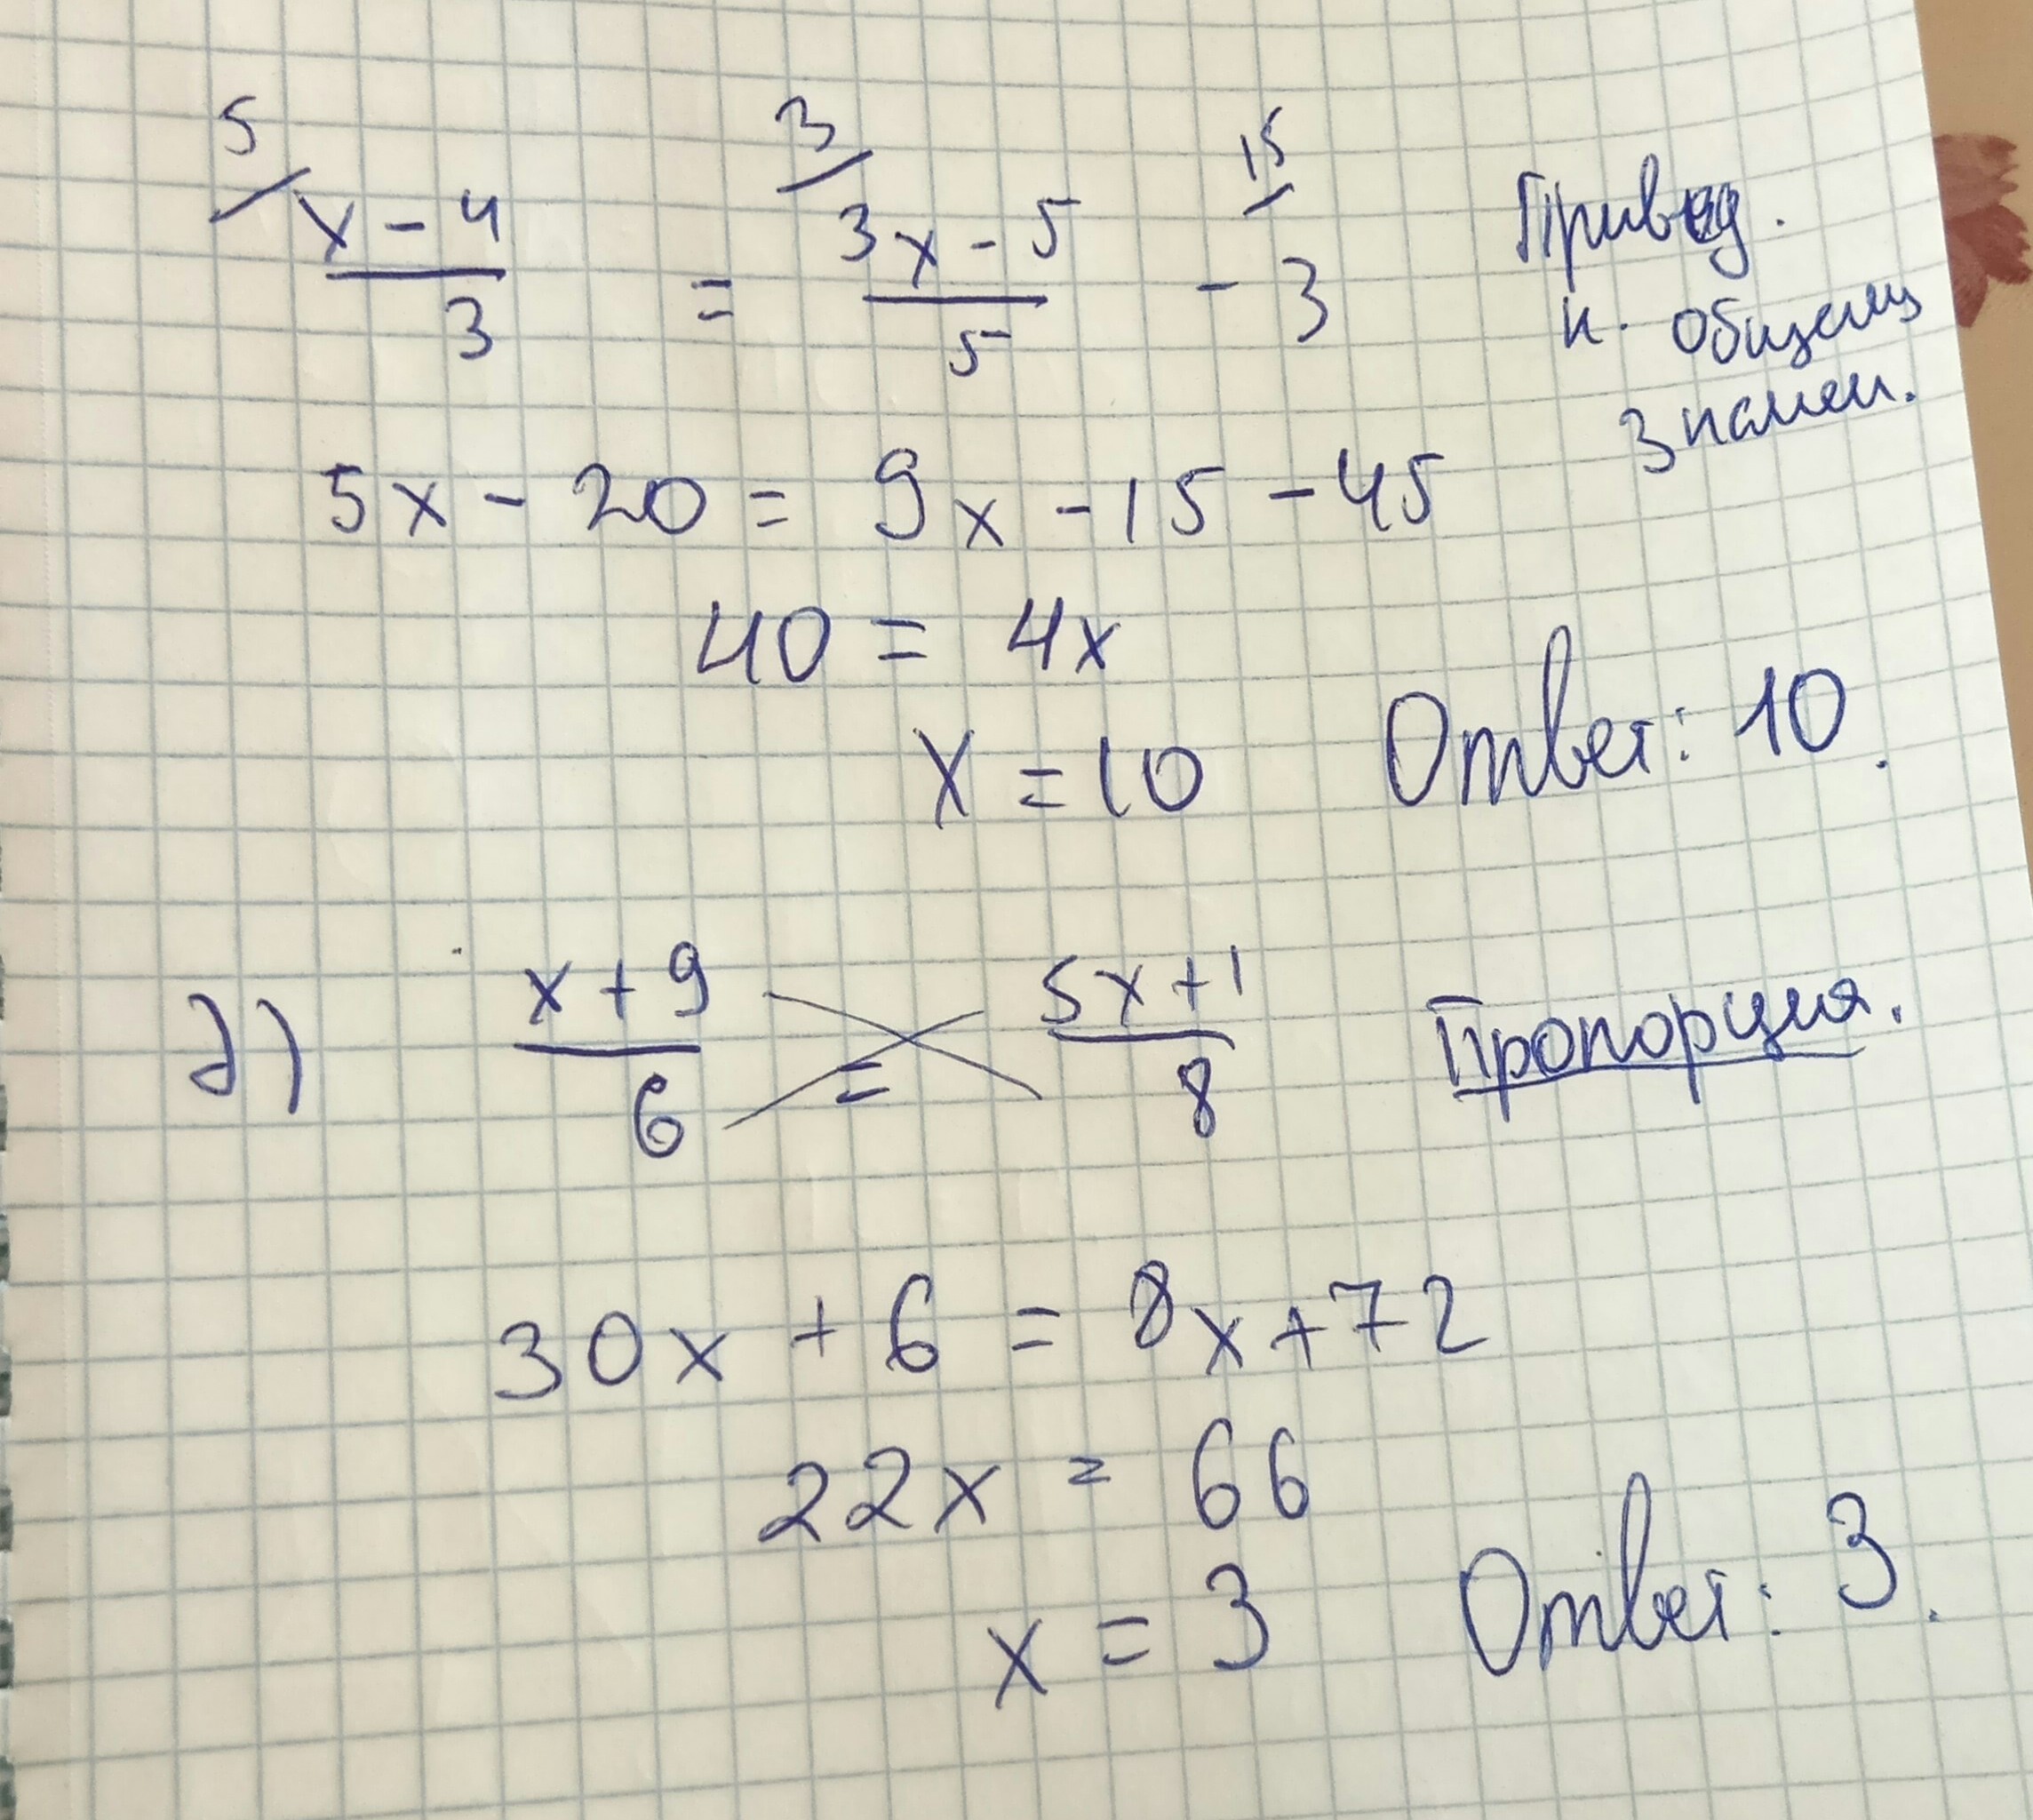 5/ (x - 4)/3 = 3/ (3x - 5)/5 - 15/ 3
Привед.
к. общему
знамен.
5x - 20 = 9x - 15 - 45
40 = 4x
x = 10 Ответ: 10.
2) (x + 9)/6 = (5x + 1)/8 Пропорция.
30x + 6 = 8x + 72
22x = 66
x = 3 Ответ: 3.